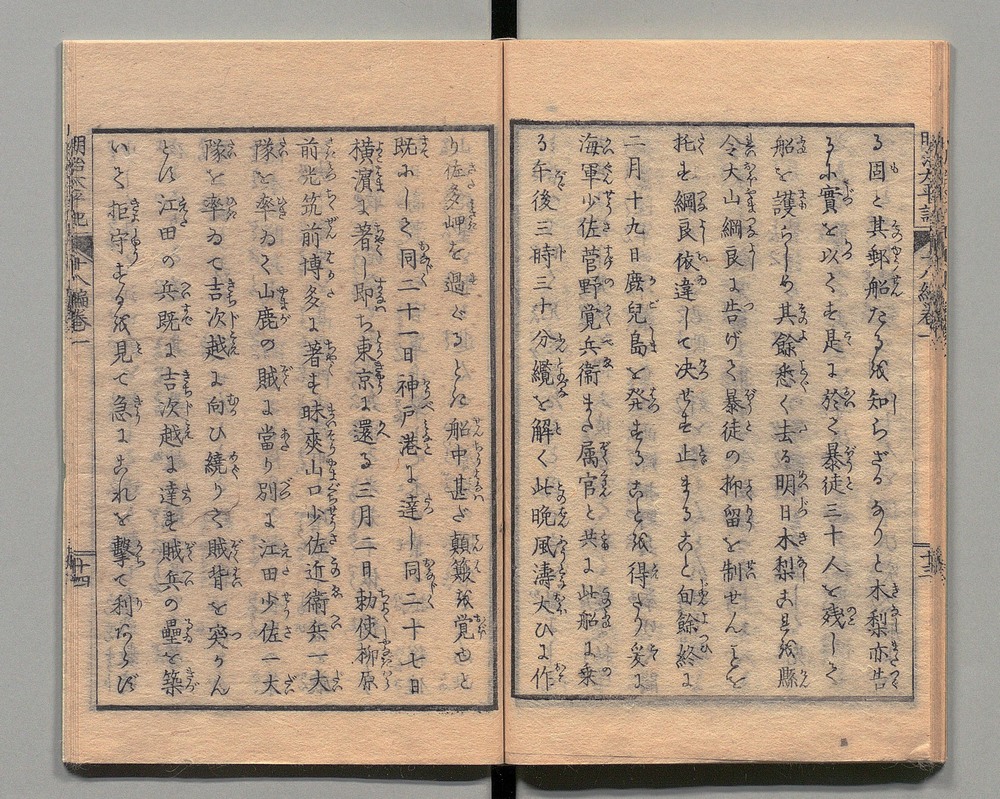 明治太平記
十八編巻一
る固と其郵船たるを知らざるなりと木梨亦告
るに實を以てせり是に於て暴徒三十人を残して
船を護らしめ其餘悉く去る明日木梨出具を縣
令大山綱良に告げて暴徒の抑留を制せんことを
托す綱良依違して決せず止まること旬餘終に
二月十九日鹿兒島を発することを得たり爰に
海軍少佐菅野覚兵衞また属官と共に此船に乗
る午後三時三十分纜を解く此晩風濤大ひに作
り佐多岬を過ぐるとき船中甚だ顛簸を覚ゆと
既にして同二十一日神戸港に達し同二十七日
横濱に著し即ち東京に還る三月二日勅使柳原
前光筑前博多に著す昧爽山口少佐近衞兵一大
隊を率ゐて山鹿の賊に當り別に江田少佐一大
隊を率ゐて吉次越に向ひ繞りて賊背を突かん
とす江田の兵既に吉次越に達す賊兵の壘を築
いて拒守するを見て急にこれを撃て利あらず
明治太平記
十八編巻一
十四